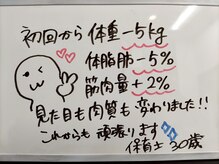 初回から 体重－5kg
体脂肪－5%
筋肉量＋2%
見た目も肉質も変わりました!!
これからも頑張ります
保育士 30歳